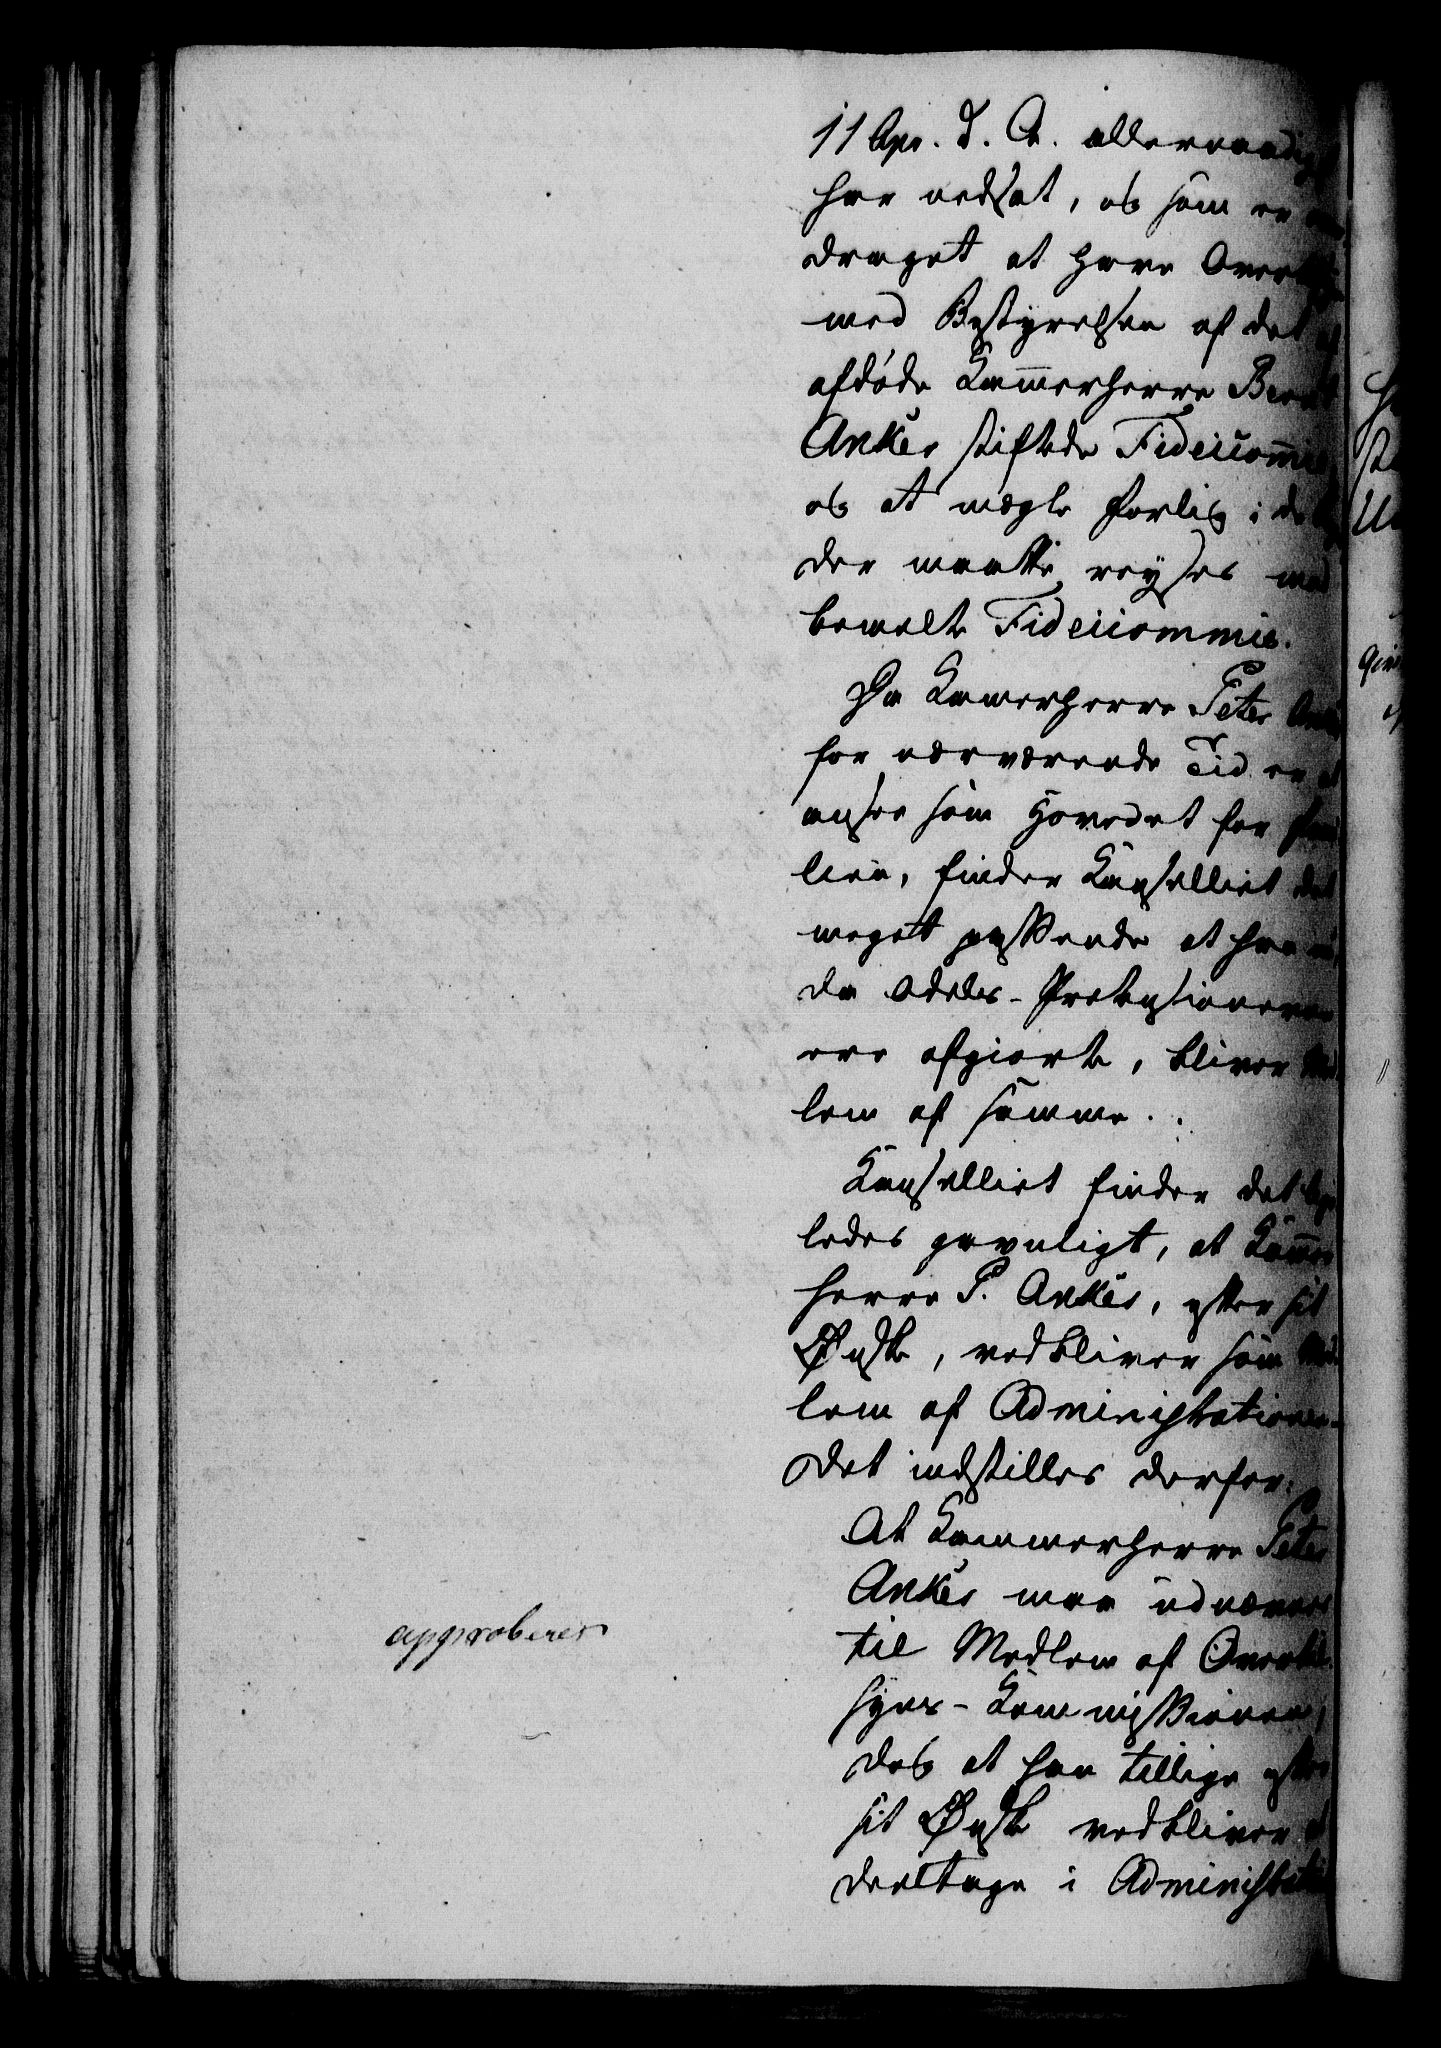 11 Apr. d. A. allernaadigst
har nedsat, og som er an-
draget at have Overtilsyn
med Bestyrelsen af det af
afdøde Kammerherre Bernt
Anker stiftede Fideicommis,
og at mægle Forliig i de
der maatte reyses mod
bemelte Fideicommis.
Da Kammerherre Peter Anker
for nærværende Tid er at
ansee som Hovedet for Fami-
lien, finder Kanselliet det
meget passende at han nu,
da Odels-Prætensionerne
ere afgiorte, bliver Med-
lem af samme.
Kanselliet finder det lige-
ledes gavnligt, at Kammer-
herre P. Anker, efter sit
Ønske, vedbliver som Med-
lem af Administrationen.
Det indstilles derfor:
At Kammerherre Peter
Anker maa udnævnes
til Medlem af Overtil-
syns-Kommissionen,
dog at han tillige efter
sit Ønske vedbliver at
deeltage i Administration
approberes